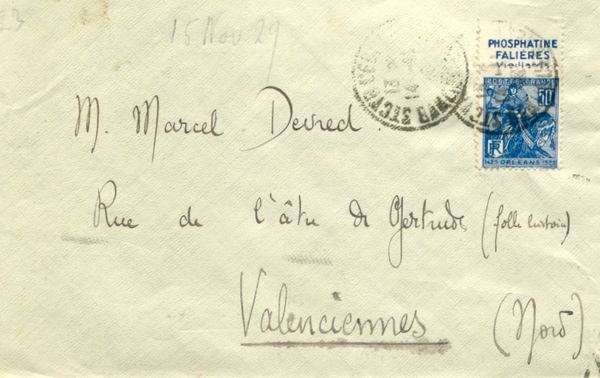 15 Nov 29
PHOSPHATINE
FALIÈRES
Vieillards
POSTES FRANCE
50c
RF
1429 ORLEANS 1929
M. Marcel Devred
Rue de l'âtre de Gertrude (folle
Valenciennes (Nord)